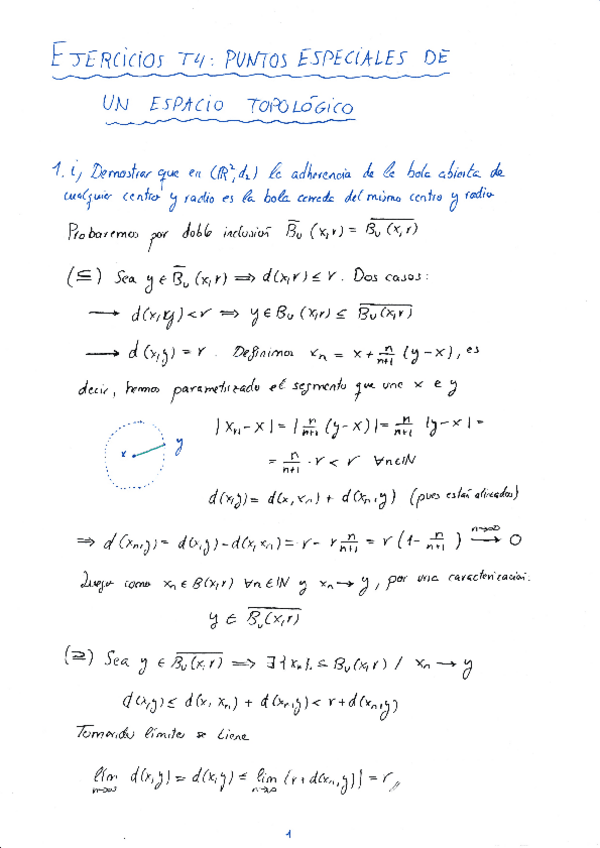 EJERCICIOS T4: PUNTOS ESPECIALES DE
UN ESPACIO TOPOLÓGICO
1. i) Demostrar que en (ℝ², d₂) la adherencia de la bola abierta de
cualquier centro y radio es la bola cerrada del mismo centro y radio
Probaremos por doble inclusión B̅ᵤ(x,r) = \overline{Bᵤ(x,r)}
(⊆) Sea y ∈ B̅ᵤ(x,r) ⟹ d(x,r) ≤ r. Dos casos:
→ d(x,y) < r ⟹ y ∈ Bᵤ(x,r) ⊆ \overline{Bᵤ(x,r)}
→ d(x,y) = r. Definimos xₙ = x + \frac{n}{n+1} (y-x), es
decir, hemos parametrizado el segmento que une x e y
x y
|xₙ - x| = |\frac{n}{n+1} (y-x)| = \frac{n}{n+1} |y-x| =
= \frac{n}{n+1} · r < r ∀n∈ℕ
d(x,y) = d(x,xₙ) + d(xₙ,y) (pues están alineados)
⟹ d(xₙ,y) = d(x,y) - d(x,xₙ) = r - r \frac{n}{n+1} = r (1 - \frac{n}{n+1}) \xrightarrow{n→∞} 0
Luego como xₙ ∈ B(x,r) ∀n∈ℕ y xₙ → y, por una caracterización:
y ∈ \overline{Bᵤ(x,r)}
(⊇) Sea y ∈ \overline{Bᵤ(x,r)} ⟹ ∃{xₙ} ⊆ Bᵤ(x,r) / xₙ → y
d(x,y) ≤ d(x,xₙ) + d(xₙ,y) < r + d(xₙ,y)
Tomando límites se tiene
lím_{n→∞} d(x,y) = d(x,y) ≤ lím_{n→∞} (r + d(xₙ,y)) = r //
1